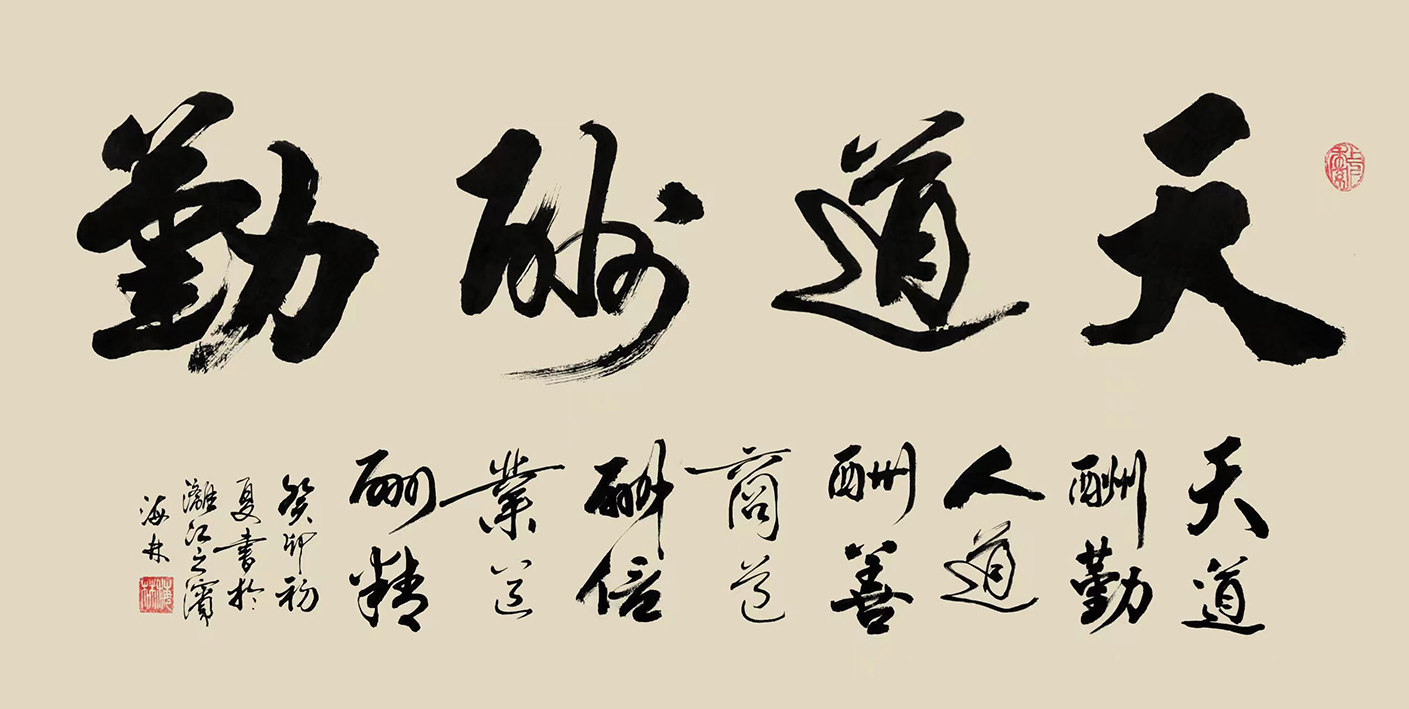 天道酬勤
天道
酬勤
人道
酬善
商道
酬信
業道
酬精
癸卯初
夏書於
灕江之濱
海林